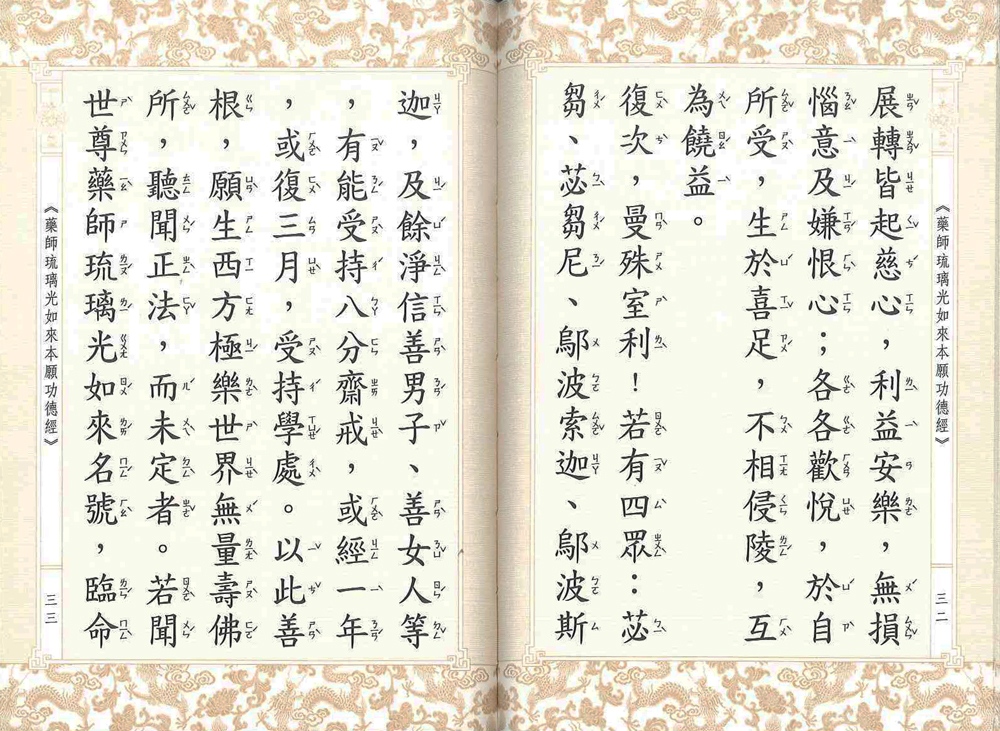 《藥師琉璃光如來本願功德經》
三二
展轉皆起慈心，利益安樂，無損
惱意及嫌恨心；各各歡悅，於自
所受，生於喜足，不相侵陵，互
為饒益。
復次，曼殊室利！若有四眾：苾
芻、苾芻尼、鄔波索迦、鄔波斯
迦，及餘淨信善男子、善女人等
，有能受持八分齋戒，或經一年
，或復三月，受持學處。以此善
根，願生西方極樂世界無量壽佛
所，聽聞正法，而未定者。若聞
世尊藥師琉璃光如來名號，臨命
《藥師琉璃光如來本願功德經》
三三